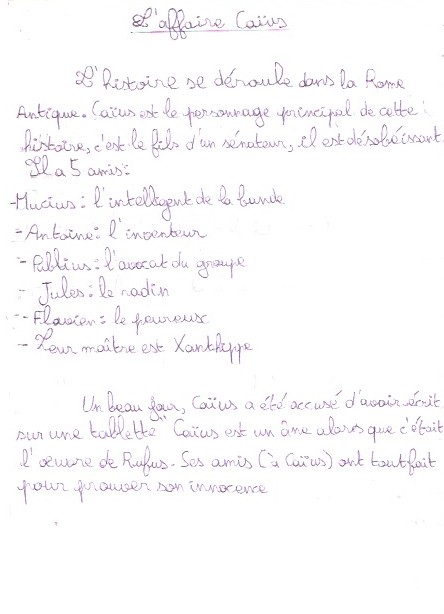 L'affaire Caïus
L'histoire se déroule dans la Rome
Antique. Caïus est le personnage principal de cette
histoire, c'est le fils d'un sénateur, il est désobéissant.
Il a 5 amis:
-Mucius: l'intelligent de la bande
-Antoine: l'inventeur
-Publius: l'avocat du groupe
- Jules: le radin
-Flavien: le peureux
- Leur maître est Xanthippe
Un beau jour, Caïus a été accusé d'avoir écrit
sur une tablette "Caïus est un âne alors que c'était
l'œuvre de Rufus. Ses amis (à Caïus) ont tout fait
pour prouver son innocence